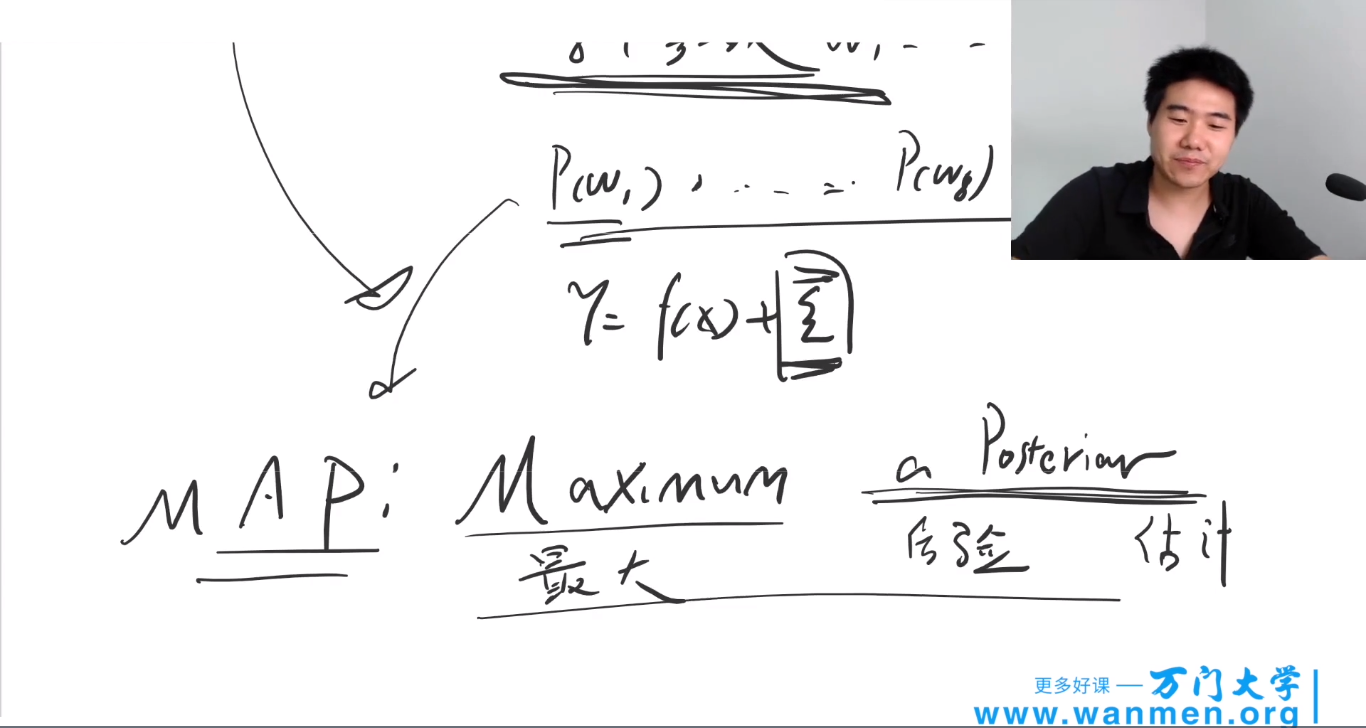 P(w₁), ..... P(w₈)
Y= f(x)+Σ
MAP: Maximum a Posterior
最大 后验 估计
更多好课 — 万门大学
www.wanmen.org